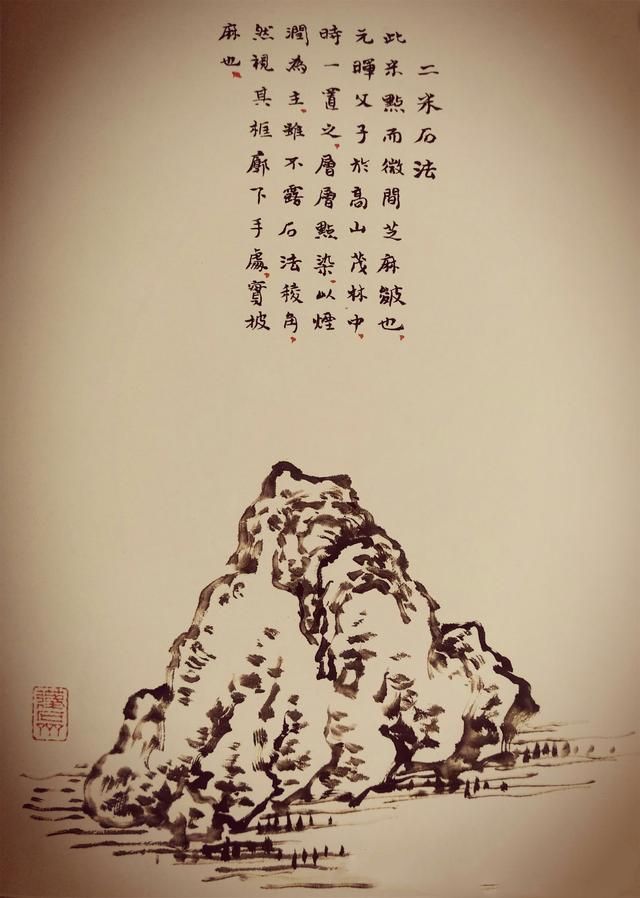 二米石法
此米點而微間芝麻皴也
元暉父子於高山茂林中
時一置之層層點染以煙
潤為主雖不露石法稜角
然視其框廓下手處實披
麻也